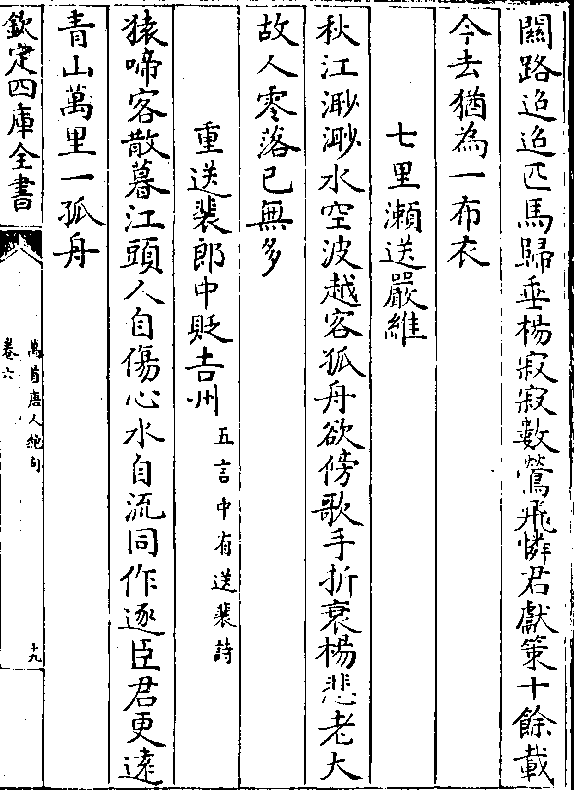 關路迢迢匹馬歸垂楊寂寂數鶯飛憐君獻策十餘載
今去猶為一布衣
七里瀨送嚴維
秋江渺渺水空波越客孤舟欲傍歌手折衰楊悲老大
故人零落已無多
重送裴郎中貶吉州五言中有送裴詩
猿啼客散暮江頭人自傷心水自流同作逐臣君更遠
青山萬里一孤舟
欽定四庫全書
萬首唐人絕句
卷六
十九